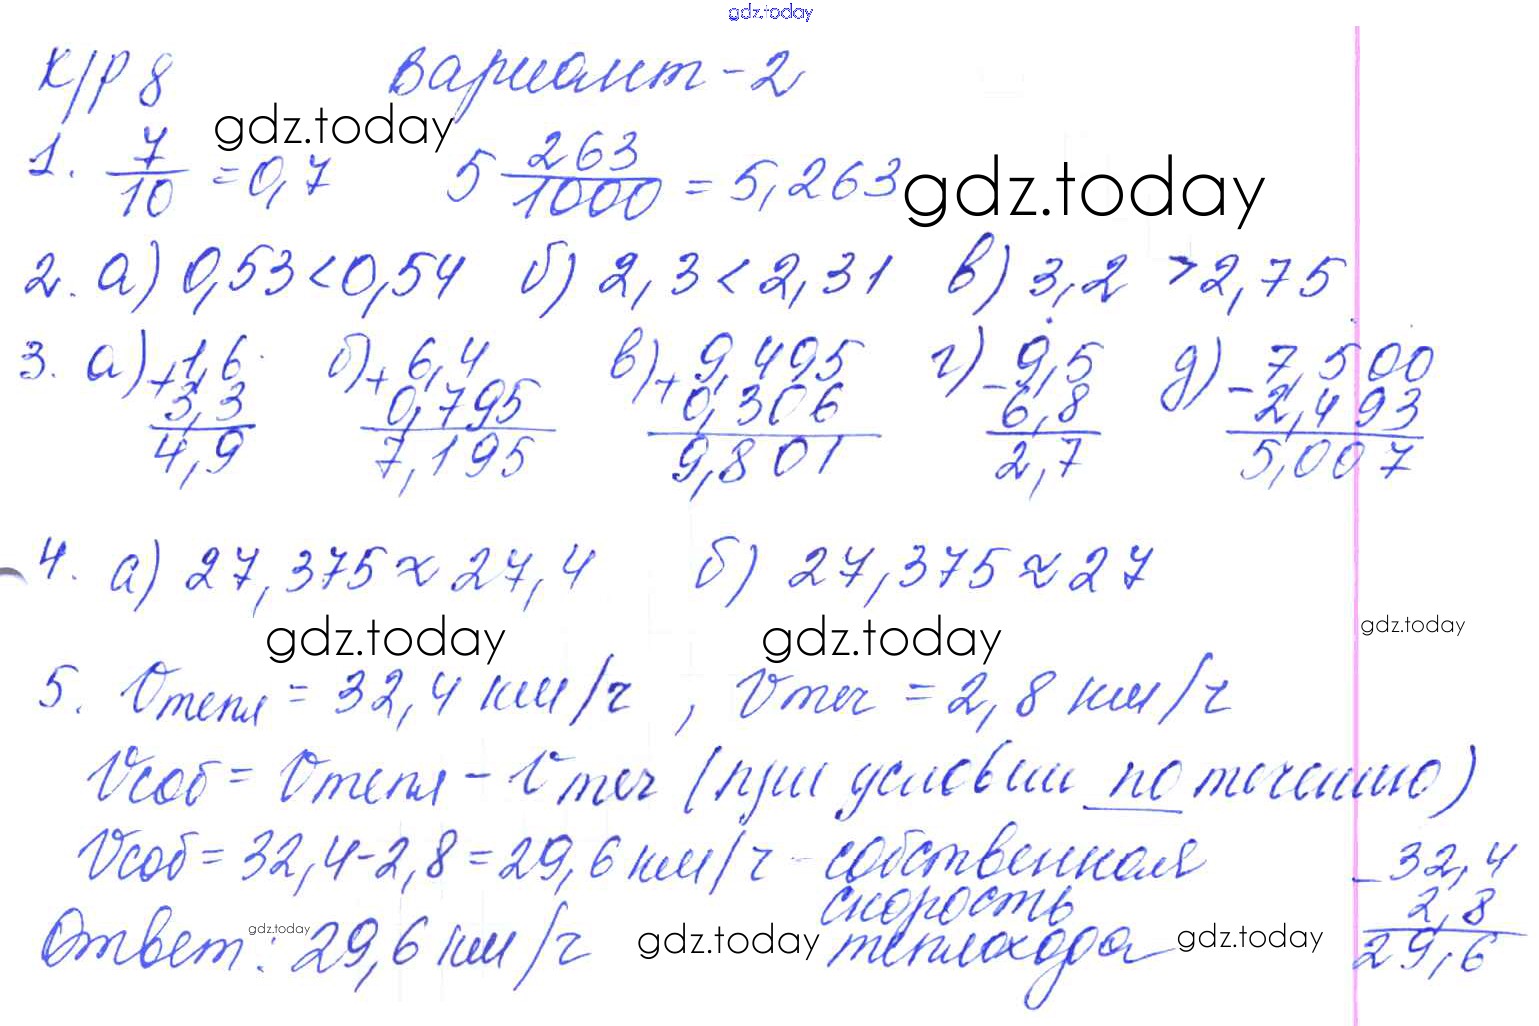 gdz.today
К/Р 8 Вариант-2
gdz.today
1. 7/10 = 0,7 5 263/1000 = 5,263 gdz.today
2. а) 0,53<0,54 б) 2,3<2,31 в) 3,2 >2,75
3. а) +1,6 б) +6,4 в) +9,495 г) -9,5 д) -7,500
3,3 0,795 0,306 6,8 2,493
4,9 7,195 9,801 2,7 5,007
4. а) 27,375≈27,4 б) 27,375≈27
gdz.today gdz.today gdz.today
5. Vтепл = 32,4 км/ч , Vтеч = 2,8 км/ч
Vсоб = Vтепл - Vтеч (при условии по течению)
Vсоб = 32,4-2,8=29,6 км/ч - собственная -32,4
скорость 2,8
Ответ: gdz.today 29,6 км/ч gdz.today теплохода gdz.today 29,6